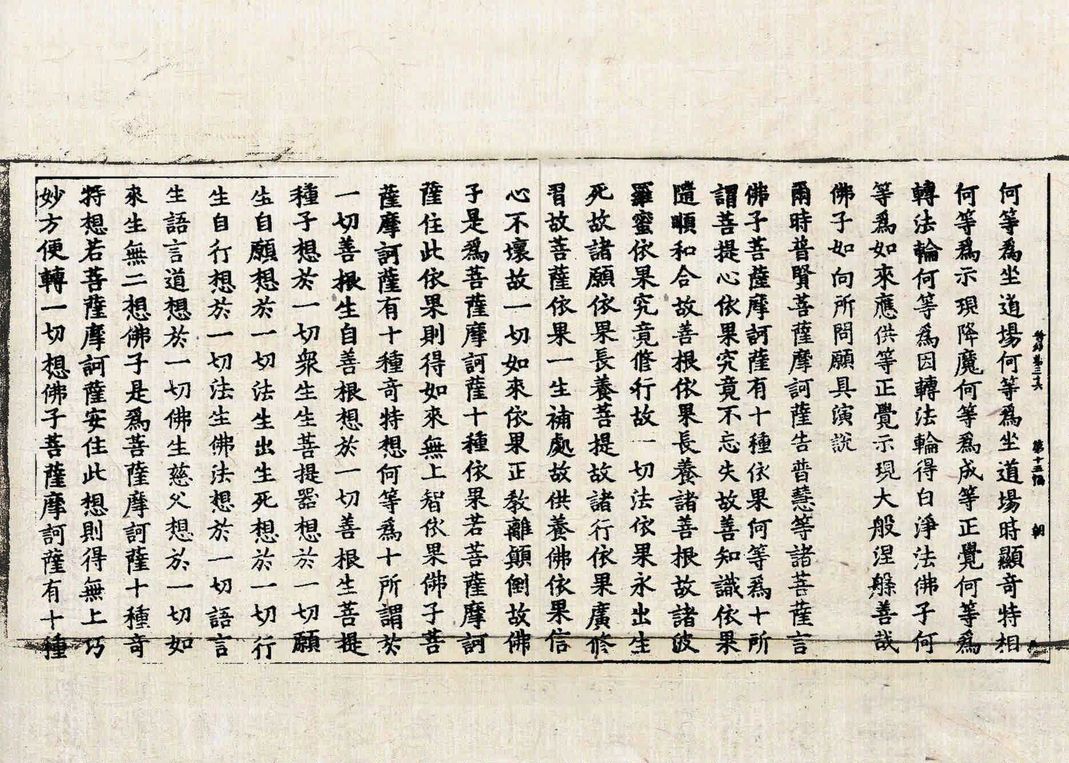 何等爲坐道場何等爲坐道場時顯奇特相
何等爲示現降魔何等爲成等正覺何等爲
轉法輪何等爲因轉法輪得白淨法佛子何
等爲如來應供等正覺示現大般涅槃善哉
佛子如向所問願具演說
爾時普賢菩薩摩訶薩告普慧等諸菩薩言
佛子菩薩摩訶薩有十種依果何等爲十所
謂菩提心依果究竟不忘失故善知識依果
隨順和合故善根依果長養諸善根故諸波
羅蜜依果究竟修行故一切法依果永出生
死故諸願依果長養菩提故諸行依果廣修
習故菩薩依果一生補處故供養佛依果信
心不壞故一切如來依果正教離顛倒故佛
子是爲菩薩摩訶薩十種依果若菩薩摩訶
薩住此依果則得如來無上智依果佛子菩
薩摩訶薩有十種奇特想何等爲十所謂於
一切善根生自善根想於一切善根生菩提
種子想於一切衆生生菩提器想於一切願
生自願想於一切法生出生死想於一切行
生自行想於一切法生佛法想於一切語言
生語言道想於一切佛生慈父想於一切如
來生無二想佛子是爲菩薩摩訶薩十種奇
特想若菩薩摩訶薩安住此想則得無上巧
妙方便轉一切想佛子菩薩摩訶薩有十種
第十五張 朝